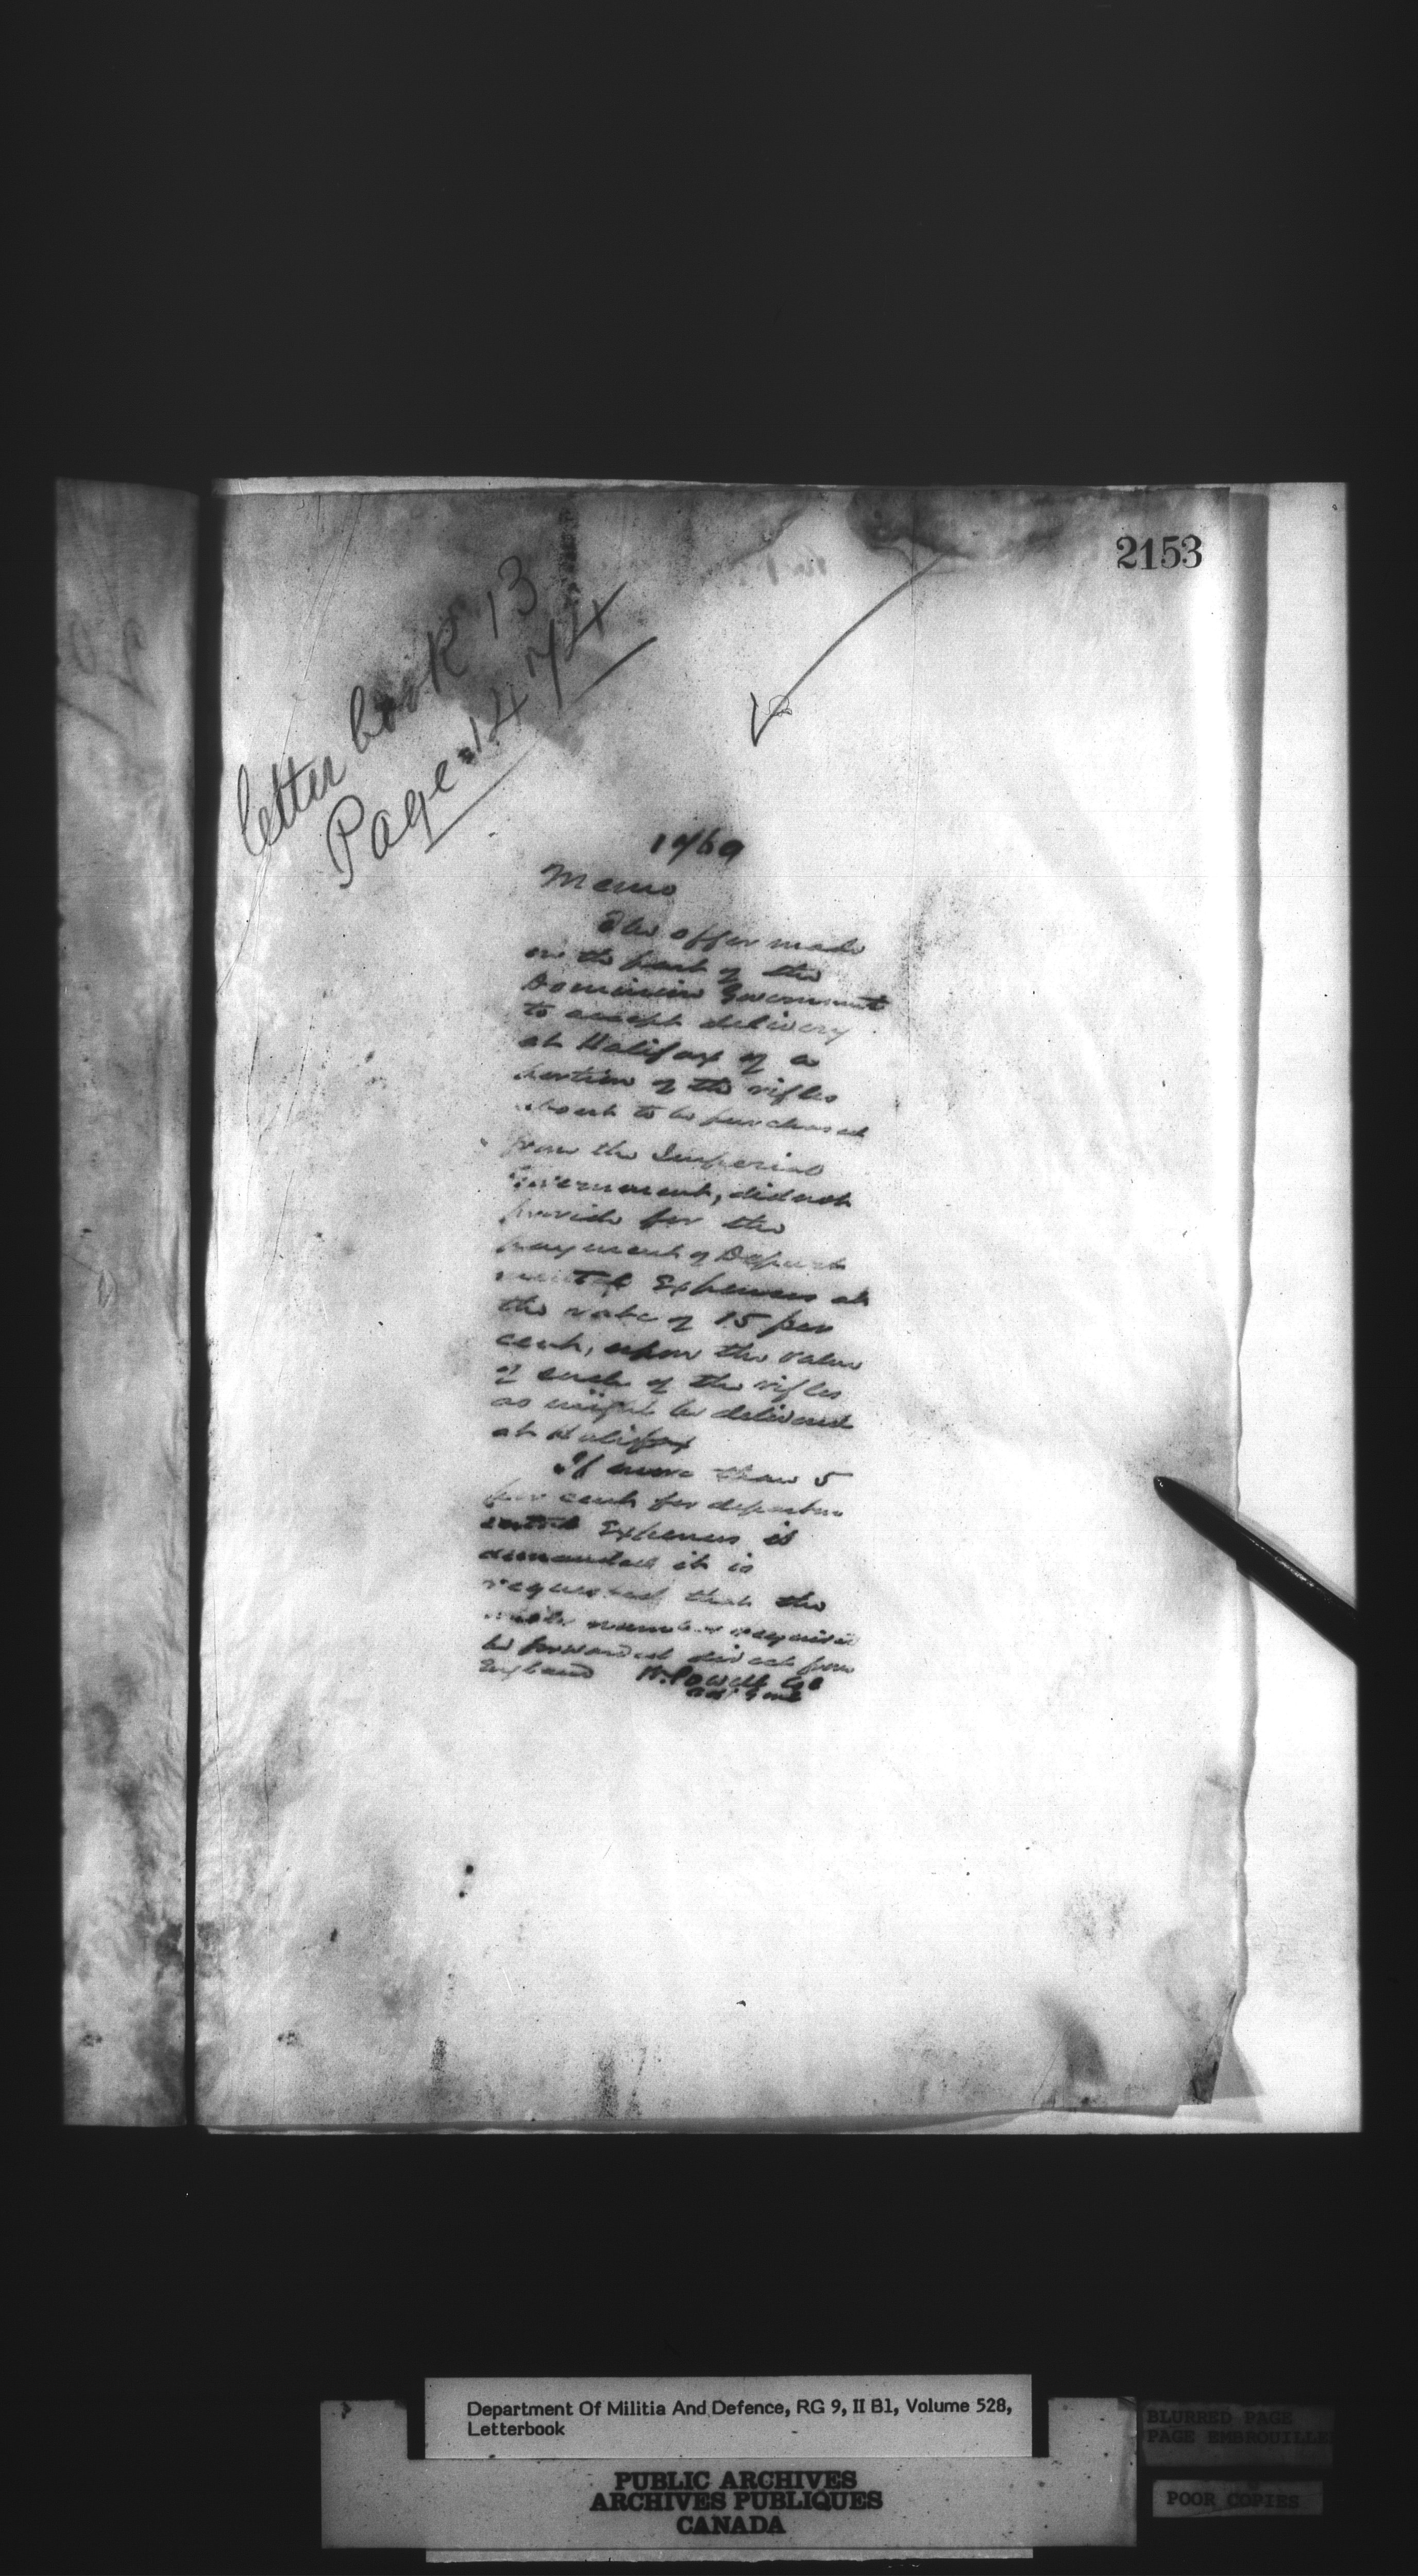 2153
letter book 13
Page 1474
Memo
The offer made
on the part of the
Dominion Government
to accept delivery
at Halifax of a
portion of the rifles
about to be purchased
from the Imperial
Government, did not
provide for the
payment of Depart
mental Expenses at
the rate of 15 per
cent, upon the value
of such of the rifles
as might be delivered
at Halifax
If more than 5
per cent for departm
ental Expenses is
demanded it is
requested that the
whole number required
be forwarded direct from
England W. Powell Col
Adj Genl
Department Of Militia And Defence, RG 9, II B1, Volume 528,
Letterbook
BLURRED PAGE
PAGE EMBROUILLE
POOR COPIES
PUBLIC ARCHIVES
ARCHIVES PUBLIQUES
CANADA